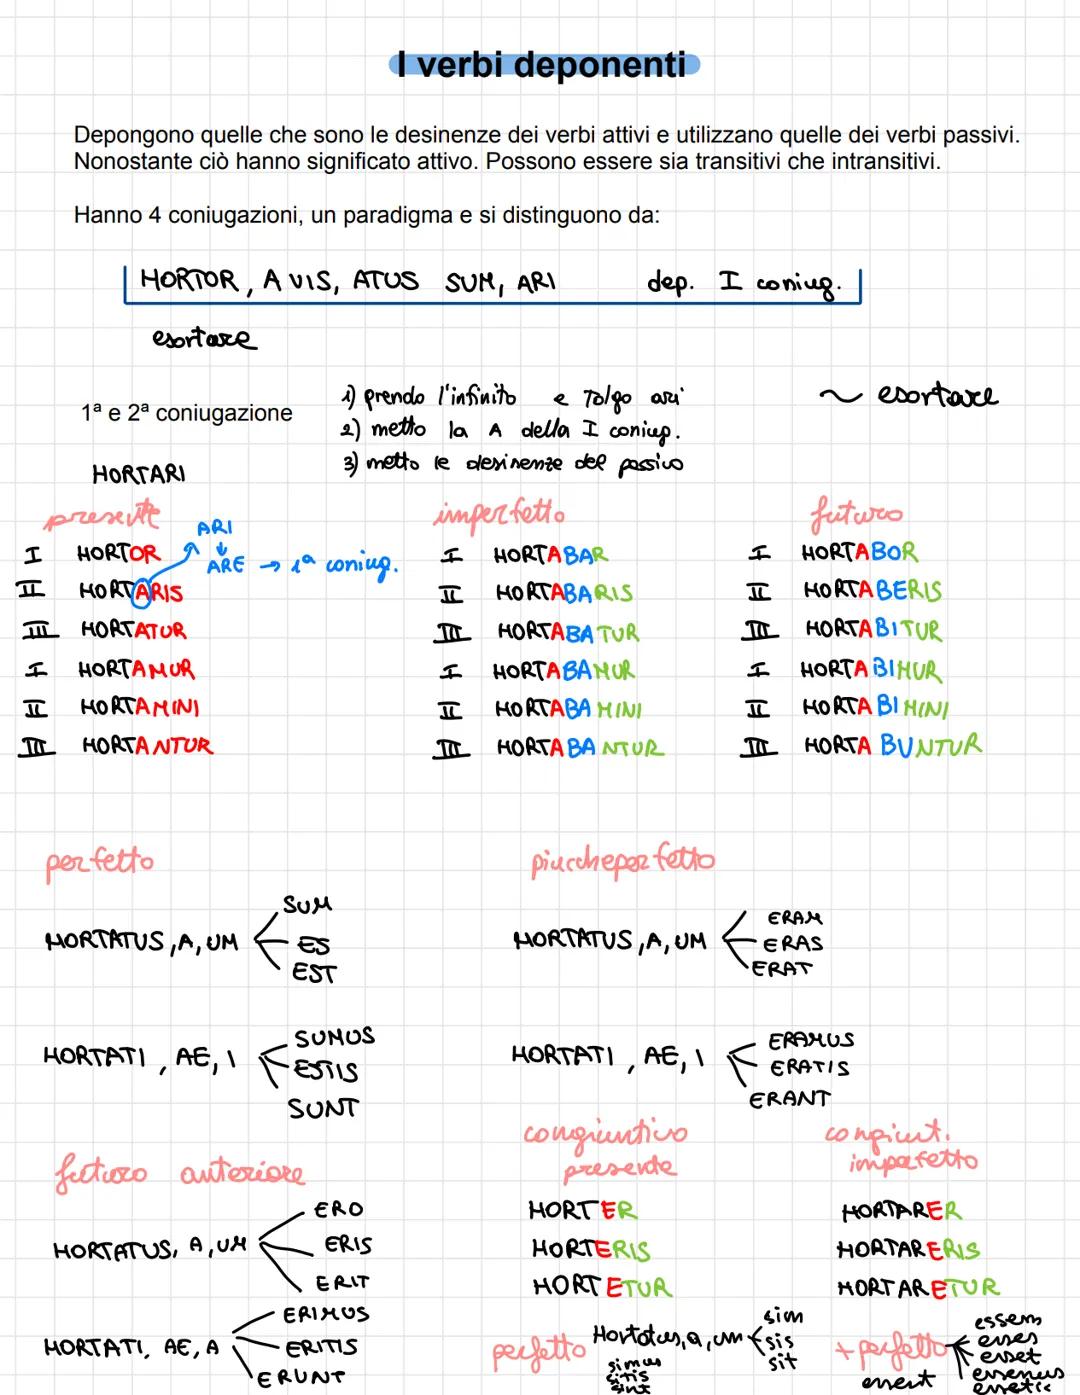 I verbi deponenti
Depongono quelle che sono le desinenze dei verbi attivi e utilizzano quelle dei verbi passivi.
Nonostante ciò hanno significato attivo. Possono essere sia transitivi che intransitivi.
Hanno 4 coniugazioni, un paradigma e si distinguono da:
HORTOR, AVIS, ATUS SUM, ARI dep. I coniug.
esortare
1ª e 2ª coniugazione
1) prendo l'infinito e tolgo ari
2) metto la A della I coniug.
3) metto le desinenze del passivo
~ esortare
HORTARI
presente
I HORTOR
II HORTARIS
III HORTATUR
I HORTAMUR
II HORTAMINI
III HORTANTUR
ARI
↓
ARE → 1ª coniug.
imperfetto
I HORTABAR
II HORTABARIS
III HORTABATUR
I HORTABAMUR
II HORTABAMINI
III HORTABANTUR
futuro
I HORTABOR
II HORTABERIS
III HORTABITUR
I HORTABIMUR
II HORTABIMINI
III HORTABUNTUR
perfetto
HORTATUS, A, UM
SUM
ES
EST
HORTATI, AE, I
SUMUS
ESTIS
SUNT
piuccheperfetto
HORTATUS, A, UM
ERAM
ERAS
ERAT
HORTATI, AE, I
ERAMUS
ERATIS
ERANT
futuro anteriore
HORTATUS, A, UM
ERO
ERIS
ERIT
HORTATI, AE, A
ERIMUS
ERITIS
ERUNT
congiuntivo
presente
HORTER
HORTERIS
HORTETUR
congiunt.
imperfetto
HORTARER
HORTARERIS
HORTARETUR
perfetto Hortatus, a, um
sim
sis
sit
simus
sitis
sint
+ perfetto
essem
esses
esset
essemus
essetis
essent